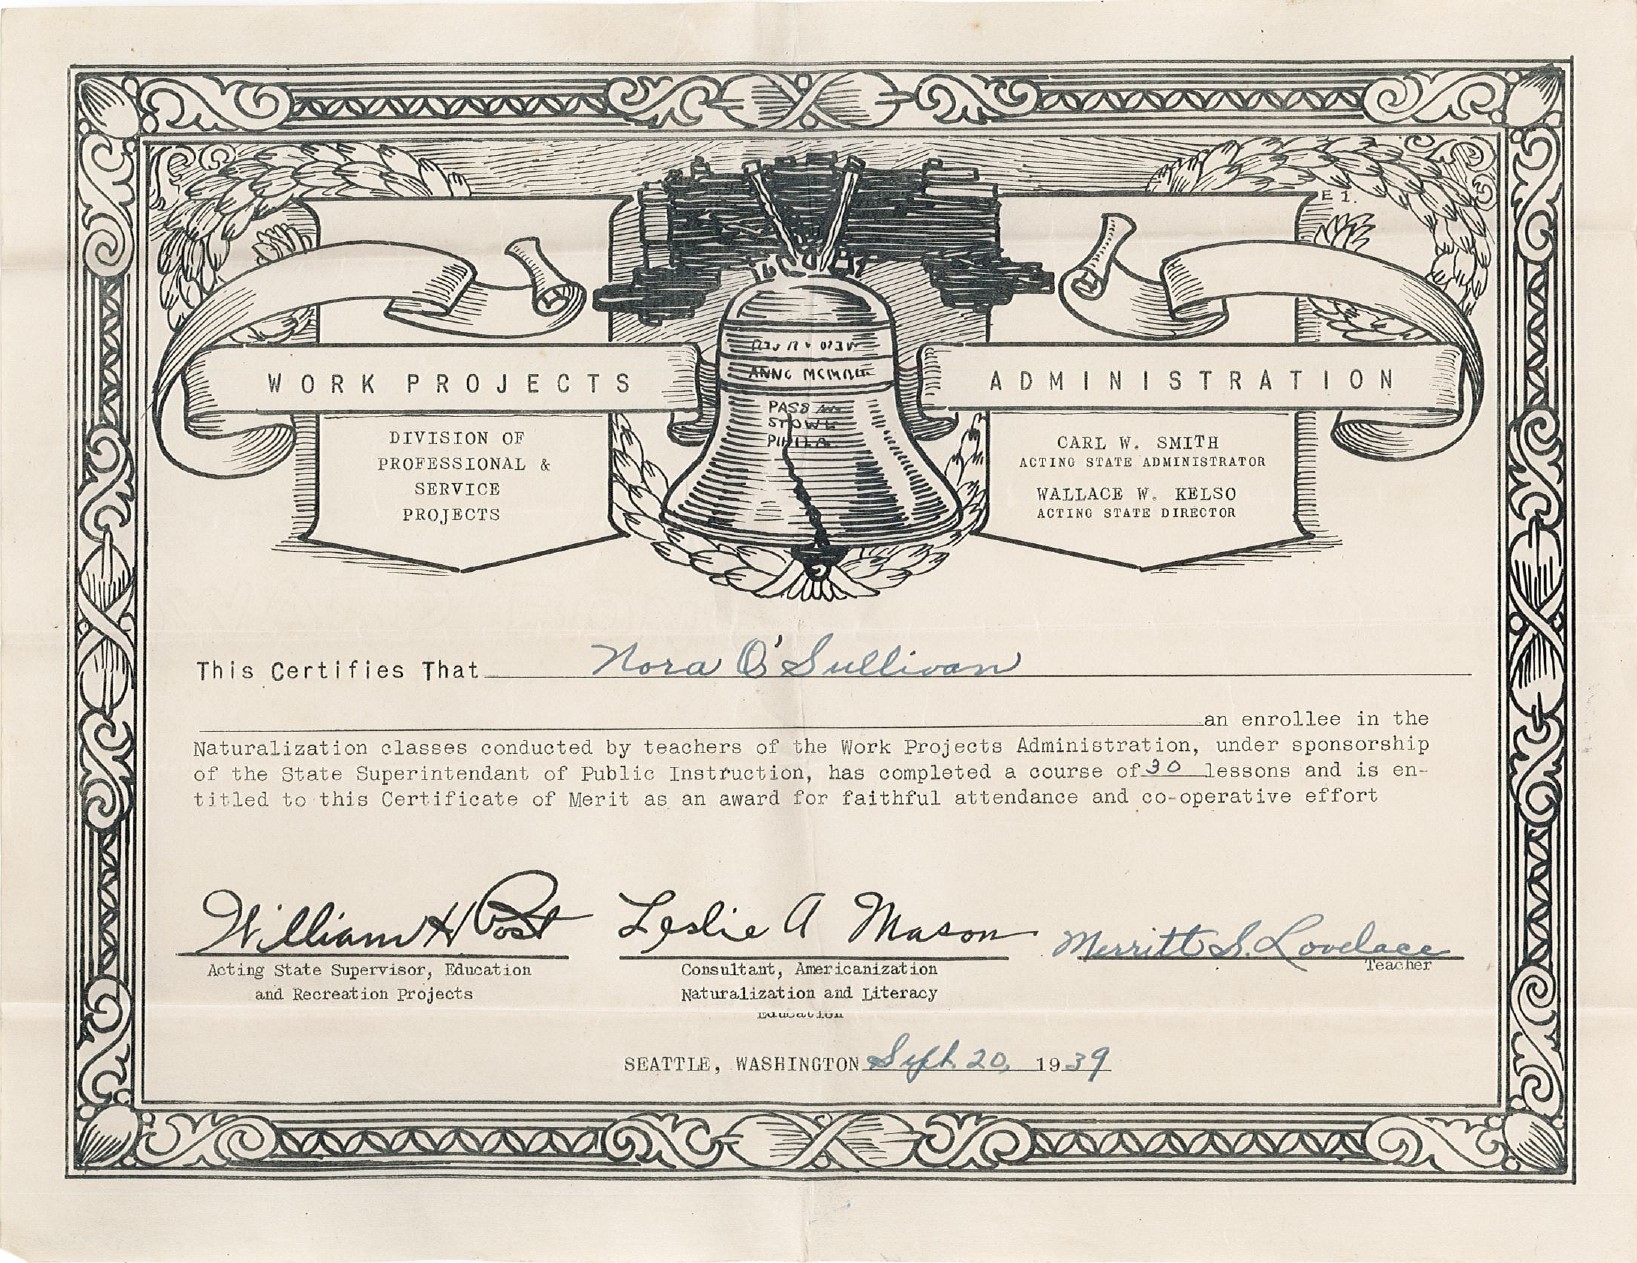 E I.
WORK PROJECTS
ADMINISTRATION
DIVISION OF
PROFESSIONAL &
SERVICE
PROJECTS
PASS AND
STOWE
PHILA.
CARL W. SMITH
ACTING STATE ADMINISTRATOR
WALLACE W. KELSO
ACTING STATE DIRECTOR
This Certifies That Nora O'Sullivan
an enrollee in the
Naturalization classes conducted by teachers of the Work Projects Administration, under sponsorship
of the State Superintendant of Public Instruction, has completed a course of 30 lessons and is en-
titled to this Certificate of Merit as an award for faithful attendance and co-operative effort
William H Post
Acting State Supervisor, Education
and Recreation Projects
Leslie A Mason
Consultant, Americanization
Naturalization and Literacy
Education
Merritt S. Lovelace
Teacher
SEATTLE, WASHINGTON Sept. 20, 1939